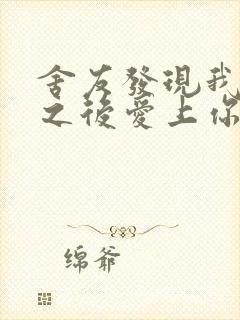 舍友發現我
之後愛上你
绵爷